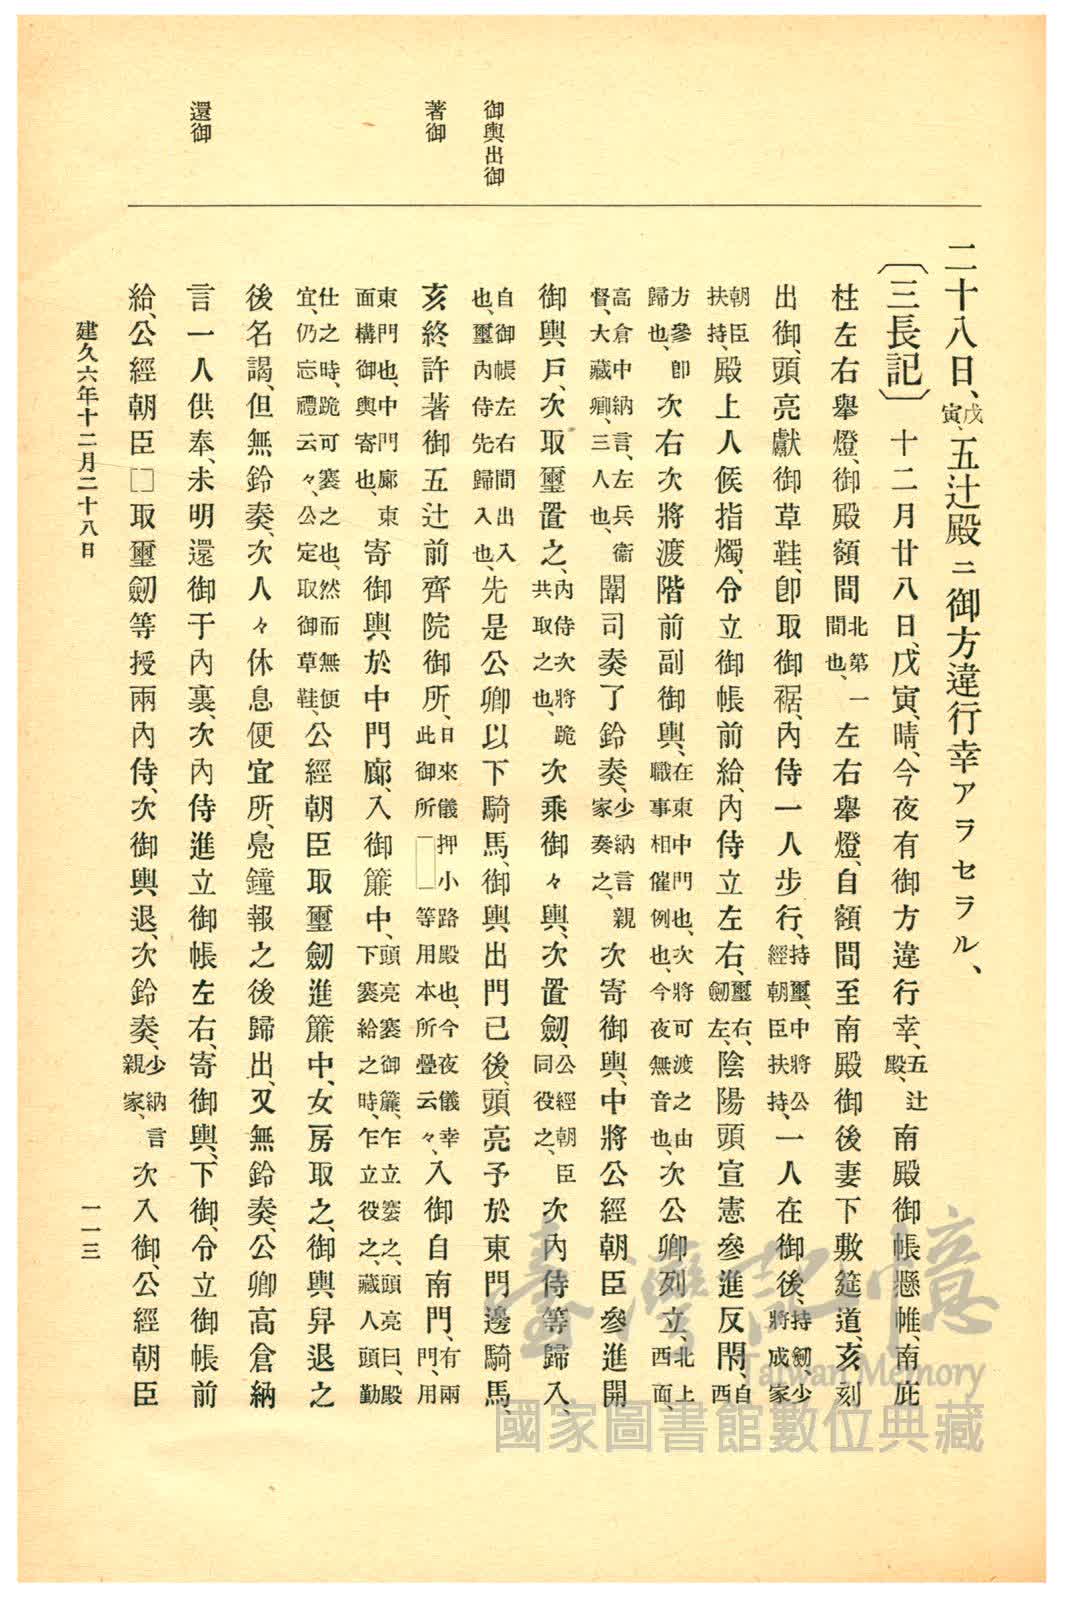 御輿出御
著御
還御
二十八日、戊寅、五辻殿ニ御方違行幸アラセラル、
〔三長記〕十二月廿八日、戊寅、晴、今夜有御方違行幸、五辻殿、南殿御帳懸帷、南庇
柱左右舉燈、御殿額間北第一間也、左右舉燈、自額間至南殿御後妻下敷筵道、亥刻
出御、頭亮獻御草鞋、卽取御裾、內侍一人步行、持璽、中將公經朝臣扶持、一人在御後、持劒、少將成家
朝臣扶持、殿上人候指燭、令立御帳前給、內侍立左右、璽右、劒左、陰陽頭宣憲參進反閇、自西
方參卽歸也、次右次將渡階前副御輿、在東中門也、次將可渡之由職事相催例也、今夜無音也、次公卿列立、北上西面、
高倉中納言、左兵衞督、大藏卿、三人也、闈司奏了鈴奏、少納言親家奏之、次寄御輿、中將公經朝臣參進開
御輿、戶、次取璽置之、內侍次將跪共取之也、次乘御々輿、次置劒、公經朝臣同役之、次內侍等歸入、
自御帳左右間出入也、璽內侍先歸入也、先是公卿以下騎馬、御輿、出門已後、頭亮予於東門邊騎馬、
亥終許著御五辻前齊院御所、日來儀押小路殿也、今夜儀幸此御所□□等用本所疊云々、入御自南門、有兩門、用
東門也、中門廊東面構御輿寄也、寄御輿於中門廊、入御簾中、頭亮褰御簾、乍立褰之、頭亮曰、殿下褰給之時、乍立役之、藏人頭勤
仕之時、跪可褰之也、然而無便宜、仍忘禮云々、公定取御草鞋、公經朝臣取璽劒進簾中、女房取之、御輿舁退之
後名謁、但無鈴奏、次人々休息便宜所、鳧鐘報之後歸出、又無鈴奏、公卿高倉納
言一人供奉、未明還御于內裏、次內侍進立御帳左右、寄御輿、下御、令立御帳前
給、公經朝臣□取璽劒等授兩內侍、次御輿、退、次鈴奏、少納言親家、次入御、公經朝臣
建久六年十二月二十八日
一一三
臺灣記憶
Taiwan Memory
國家圖書館數位典藏